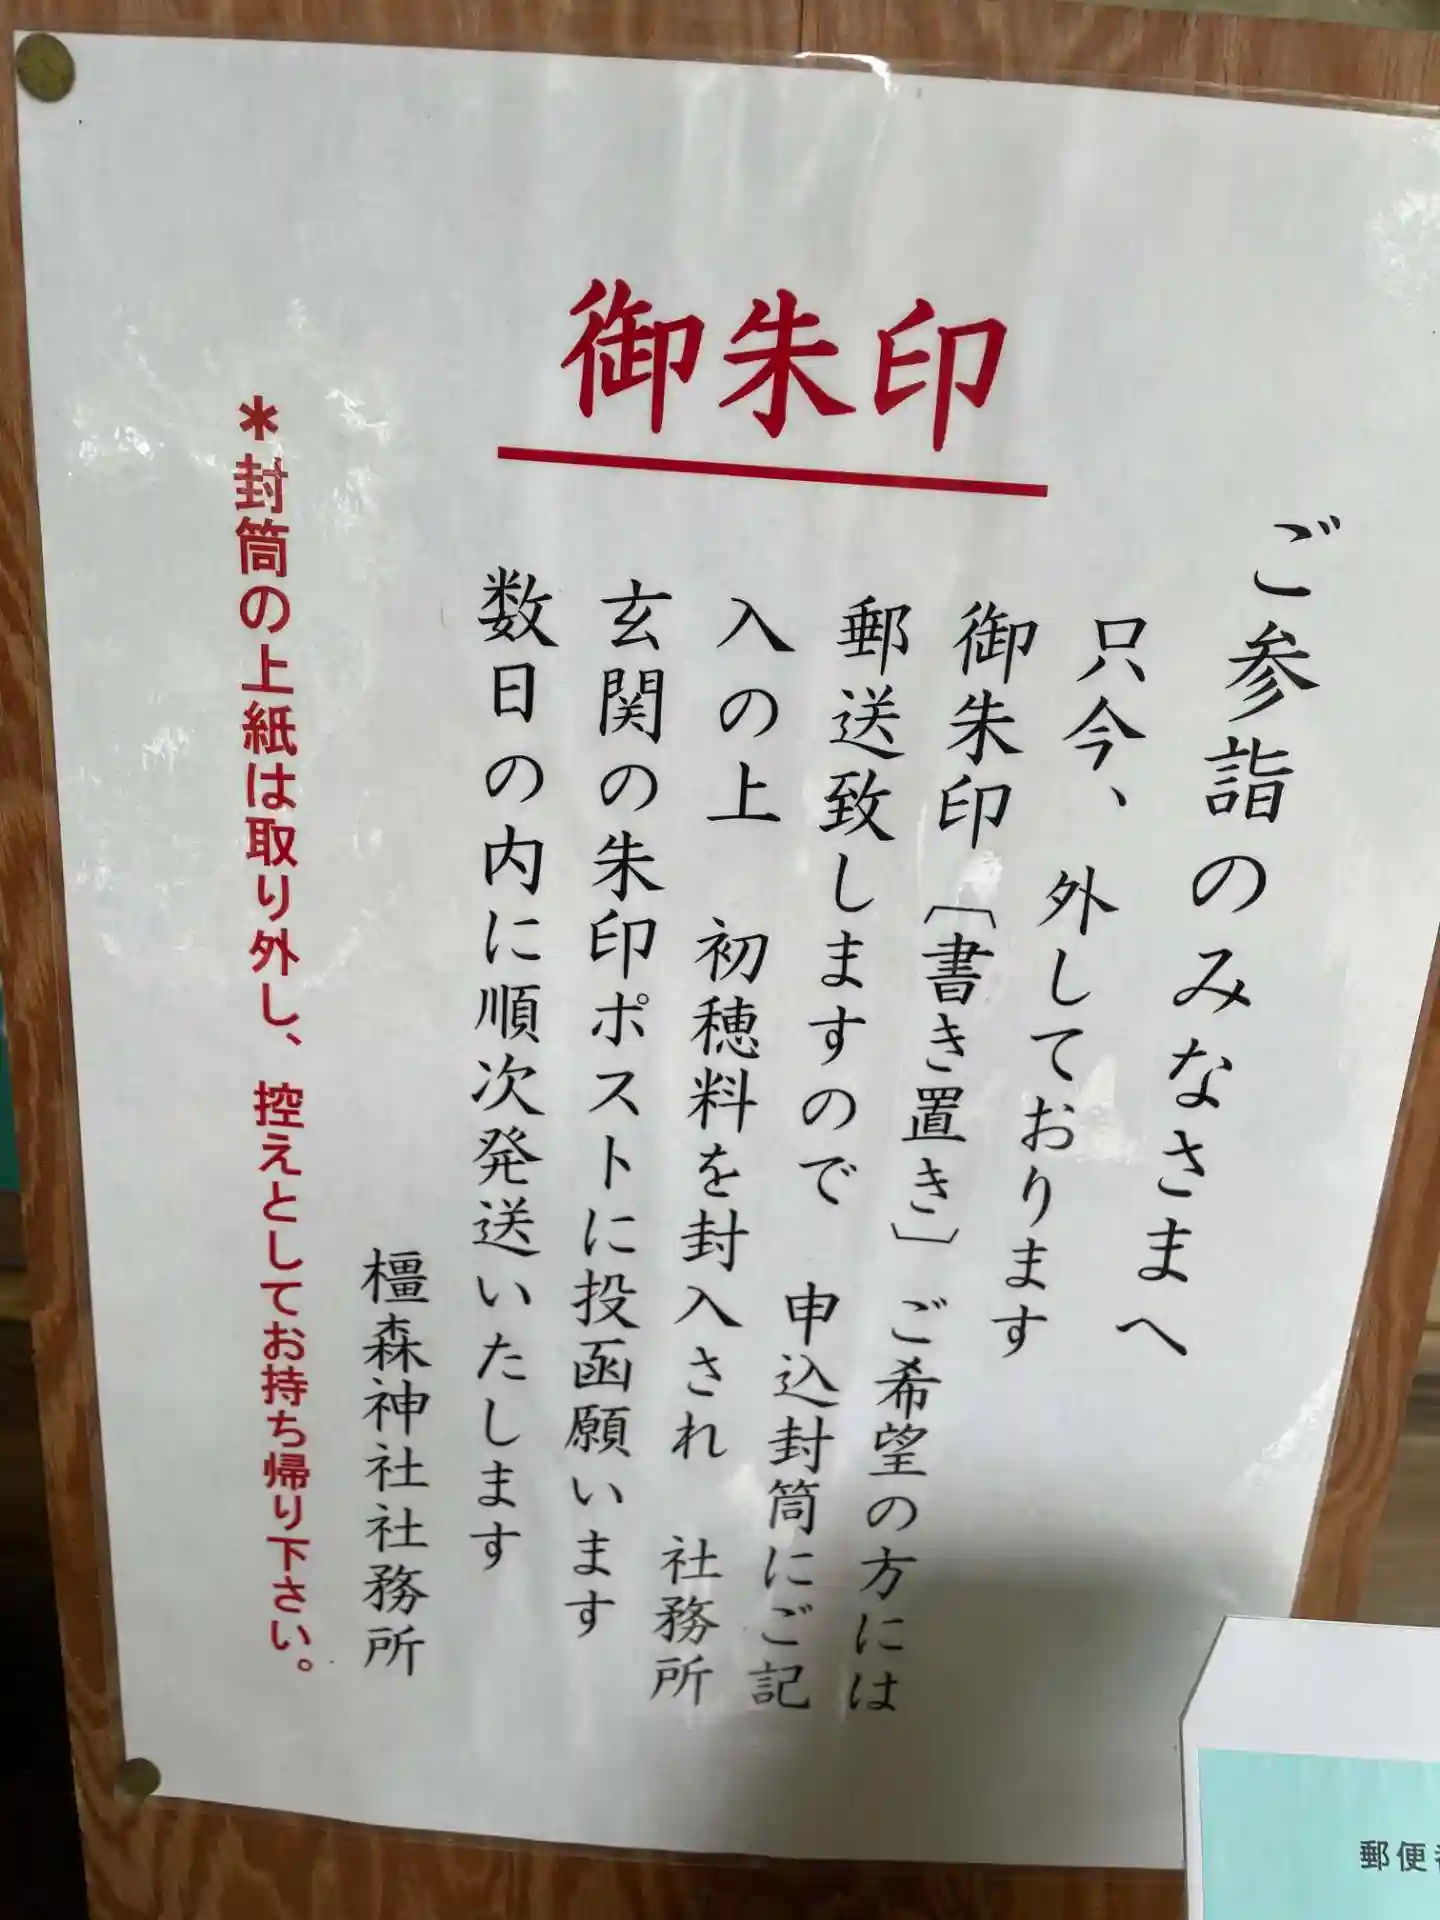 御朱印
ご参詣のみなさまへ
只今、外しております
御朱印〔書き置き〕ご希望の方には
郵送致しますので　申込封筒にご記
入の上　初穂料を封入され　社務所
玄関の朱印ポストに投函願います
数日の内に順次発送いたします
橿森神社社務所
＊封筒の上紙は取り外し、控えとしてお持ち帰り下さい。
郵便